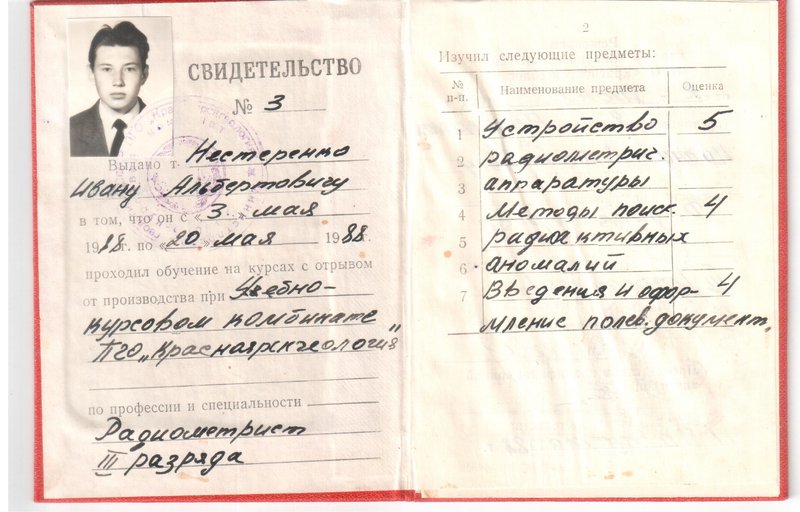 СВИДЕТЕЛЬСТВО
№ 3
Выдано т. Нестеренко
Ивану Альбертовичу
в том, что он с «3» мая
1988г. по «20» мая 1988г.
проходил обучение на курсах с отрывом
от производства при Учебно-
курсовом комбинате
ПГО „Красноярскгеология"
по профессии и специальности
Радиометрист
III разряда
2
Изучил следующие предметы:
№ п-п. Наименование предмета Оценка
1 Устройство 5
2 радиометрич.
3 аппаратуры
4 Методы поиск. 4
5 радиактивных
6 аномалий
7 Введения и офор- 4
мление полев. документ.